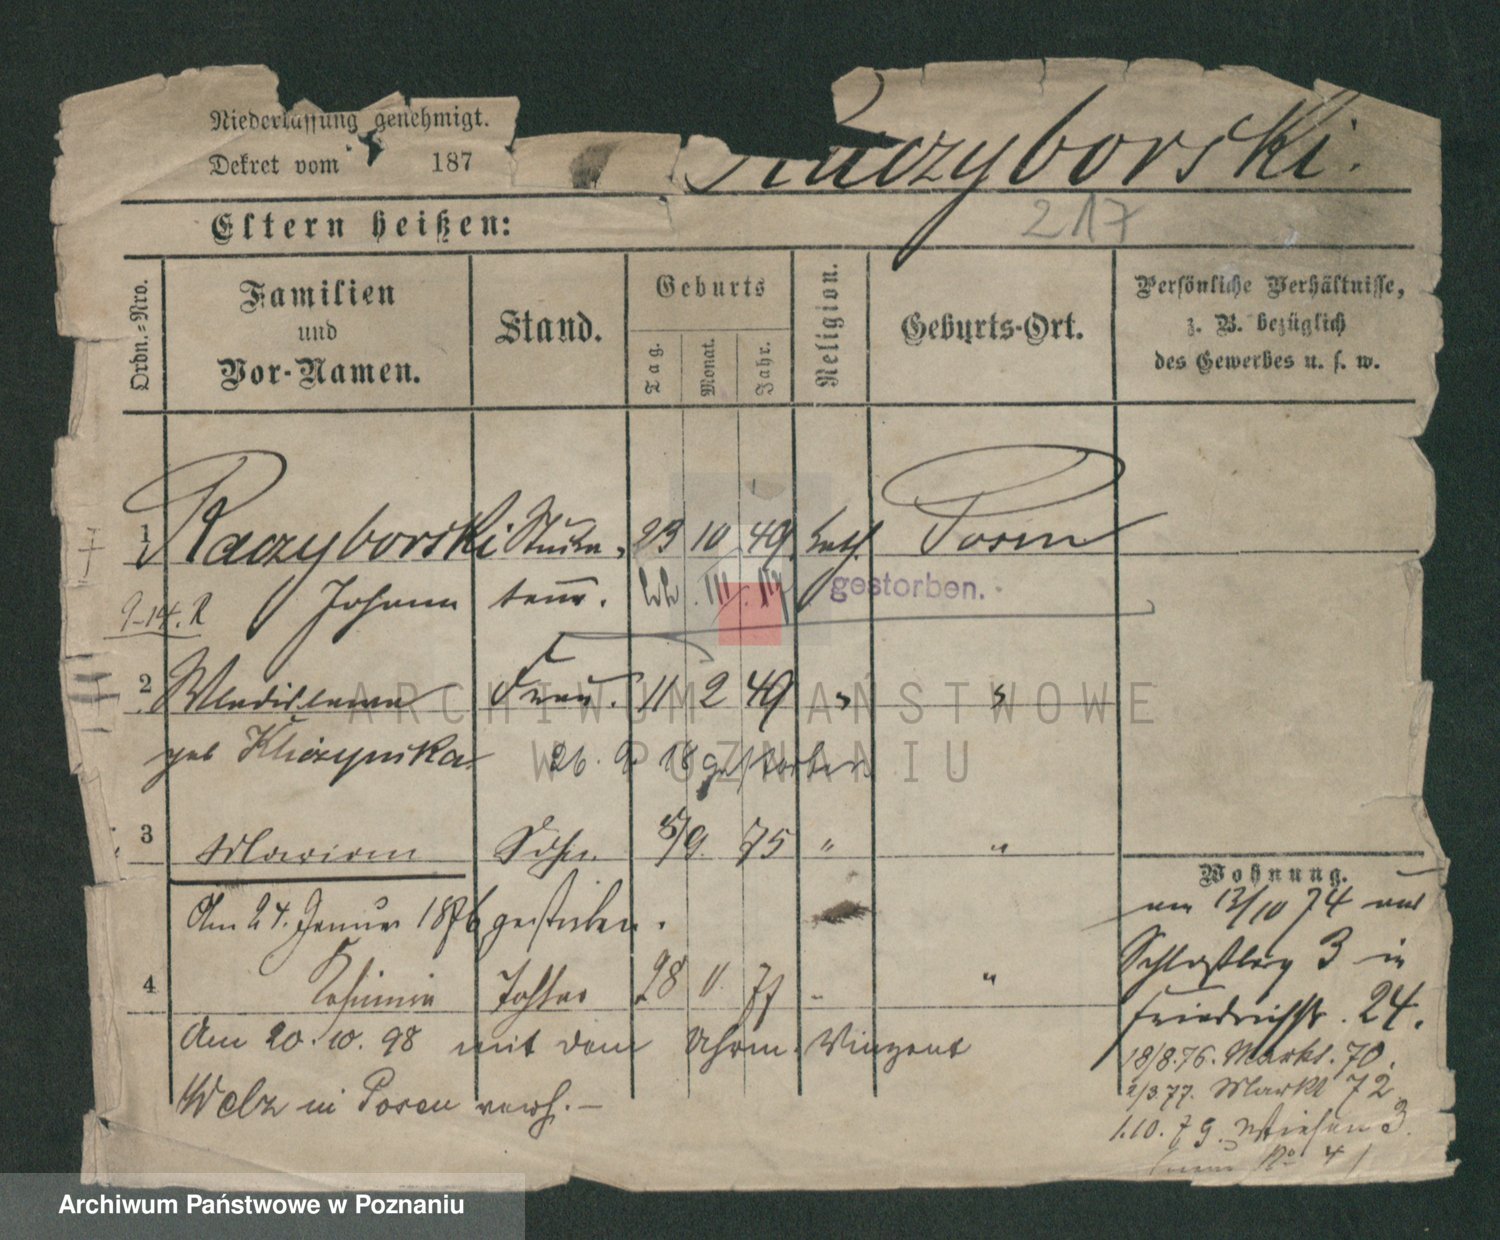 Niederlassung genehmigt.
Dekret vom 187
Raczyborski.
217
Eltern heißen:
Ordn.=Nro.
Familien
und
Vor-Namen.
Stand.
Geburts
Tag.
Monat.
Jahr.
Religion.
Geburts-Ort.
Persönliche Verhältnisse,
z. B. bezüglich
des Gewerbes u. s. w.
1 Raczyborski 23 10 49 kath. Posen
Johann gestorben.
9-14. R
2 Wladislawa Frau. 11 2 49 " "
geb 26. 9. 18 gestorben
3 Mariam Sohn. 5/9. 75 " "
Am 24. Januar 1876 gestorben.
4 Kasimira Tochter 28 11. 77 " "
Am 20.10.98 mit dem Uhrm. Vinzent
Welz in Posen verh. –
Wohnung.
am 12/10 74 aus
3 in
Friedrichstr. 24.
18/8.76. Markt. 70.
2/3.77. Markt 72
1.10.79. Wiesen 3.
No 4
ARCHIWUM PAŃSTWOWE
W POZNANIU
Archiwum Państwowe w Poznaniu